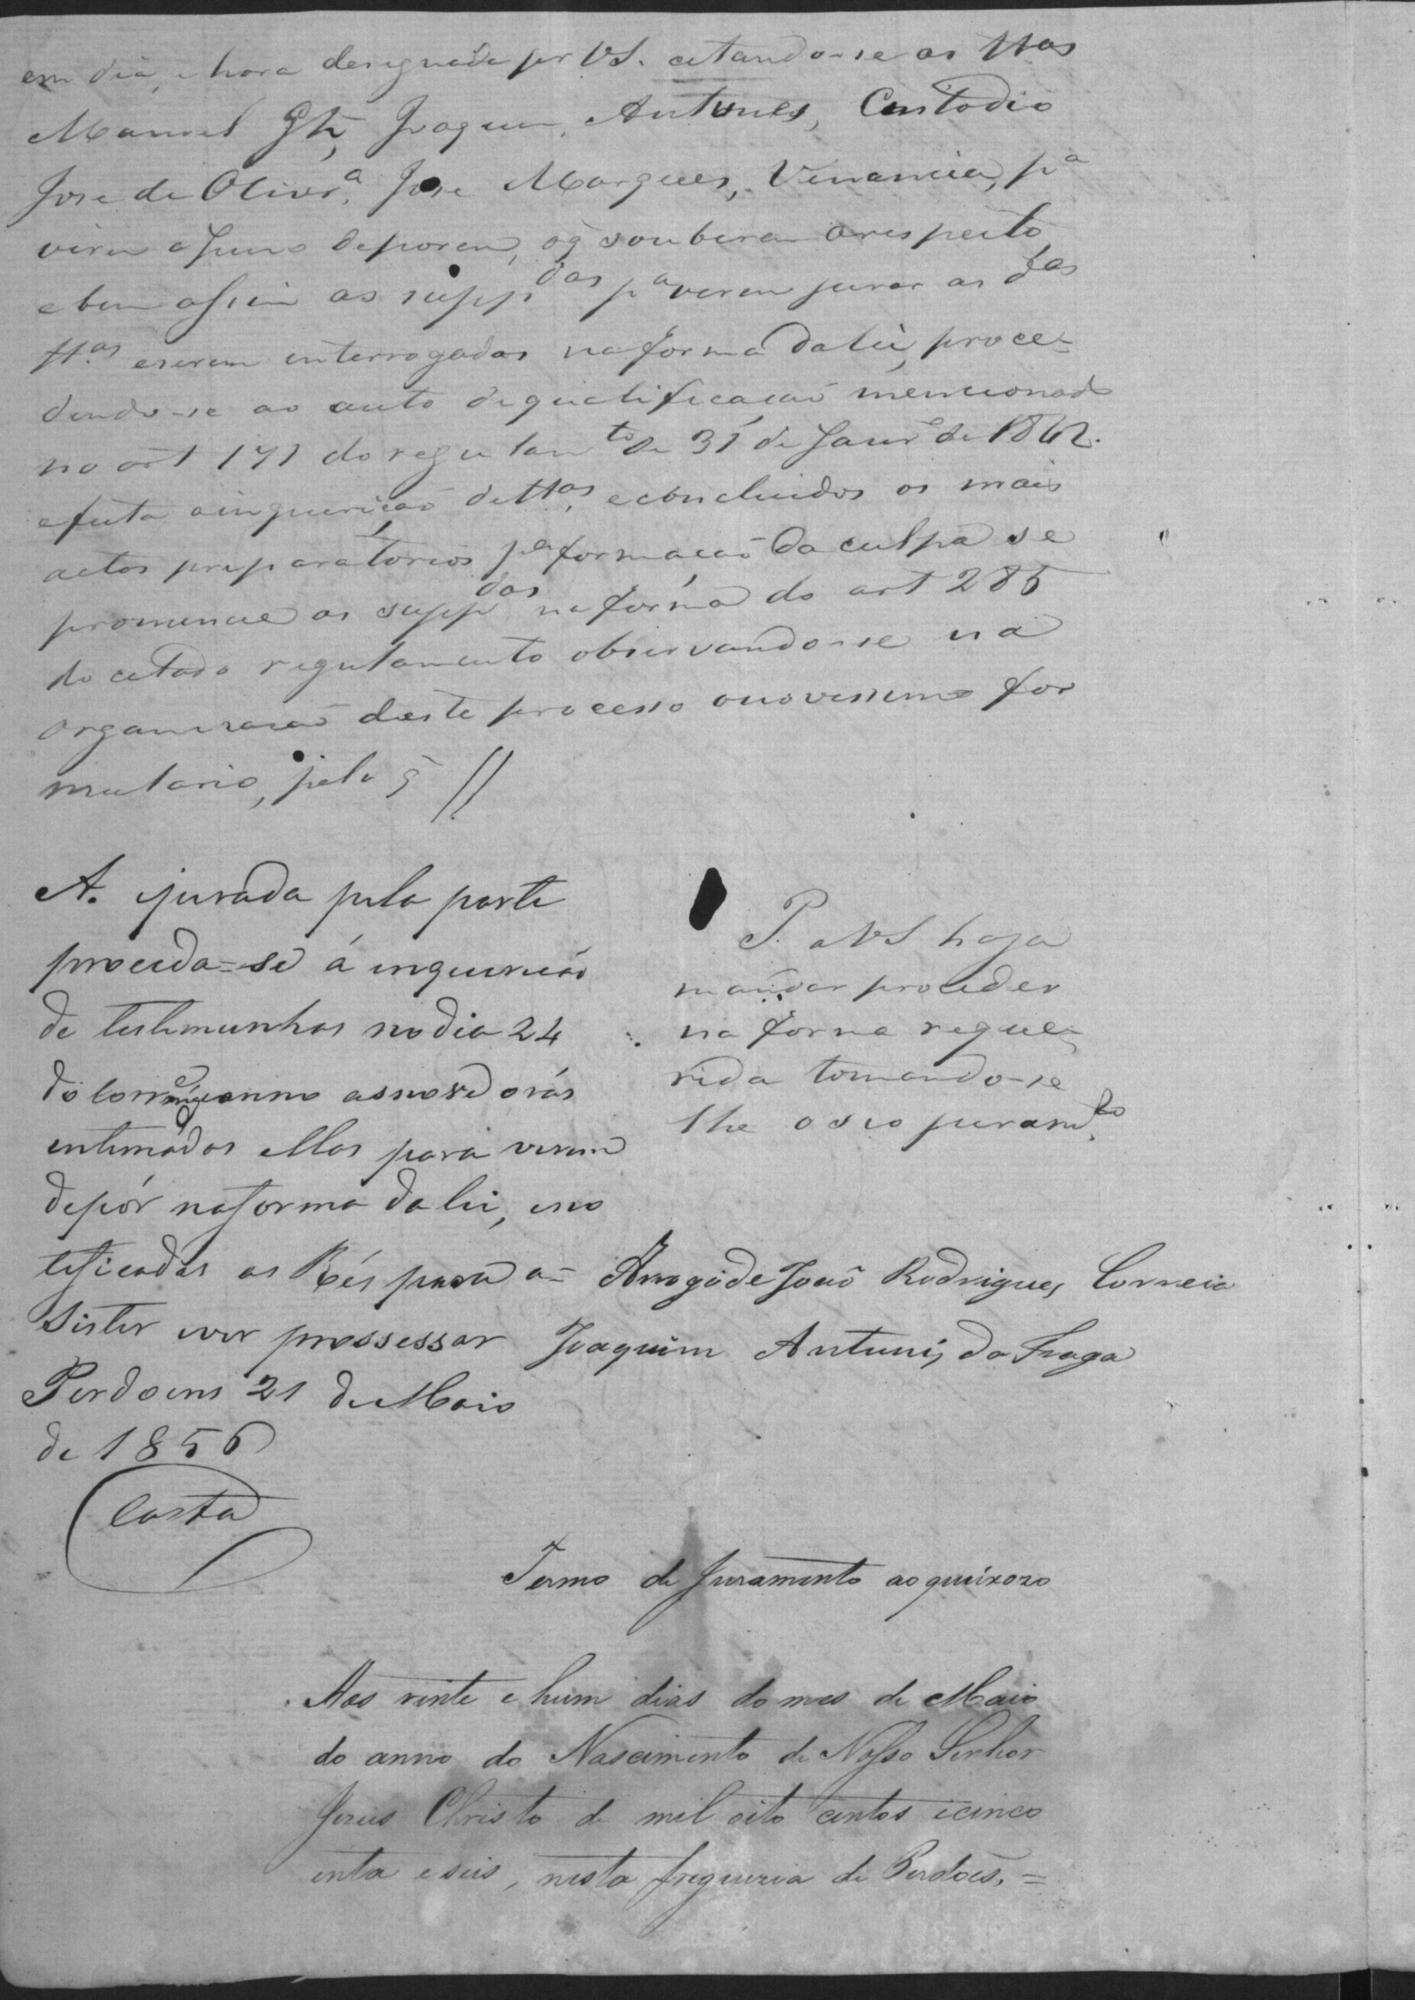 em dia, e hora designada per VS. citando-se as ttas
Manuel Glz, Joaquim Antunes, Custodio
Jose de Olivrª, Jose Marques, Venancia, pª
virem a Juizo deporem, oq̃ souberem arespeito,
e bem assim as suppdas pª verem jurar as das
ttas eserem interrogadas na forma da lei, proce=
dendo-se ao auto dequalificacaõ mencionado
no art 171 do regulamto de 31 de Janrº de 1842.
efeita ainquiriçaõ dettas, econcluidos os mais
actos preparatorios pª formacaõ da culpa se
pronuncie as suppdas na forma do art 285
do citado regulamento observando-se na
organisacaõ deste processo onovissimo for
mulario, pelo q̃ //
A. ejurada pela parte
proceda=se á inquiricaõ
de testimunhas no dia 24
do corre anno asnove oras
intimados ellas para virem
depór naforma da lei, eno
teficadas as Rés para a=
sister ever prossessar
Perdoens 21 de Maio
de 1856
Costa
P. a VS haja
mandar proceder
na forma reque=
rida tomando-se
lhe o seo juramto
Arrogo de Joaõ Rodrigues Correia
Joaquim Antunis da Fraga
Termo de Juramento ao queixozo
Aos vinte e hum dias do mes de Maio
do anno do Nascimento de Nosso Senhor
Jesus Christo de mil oito centos ecinco
enta eseis, nesta freguezia de Perdoẽs, =